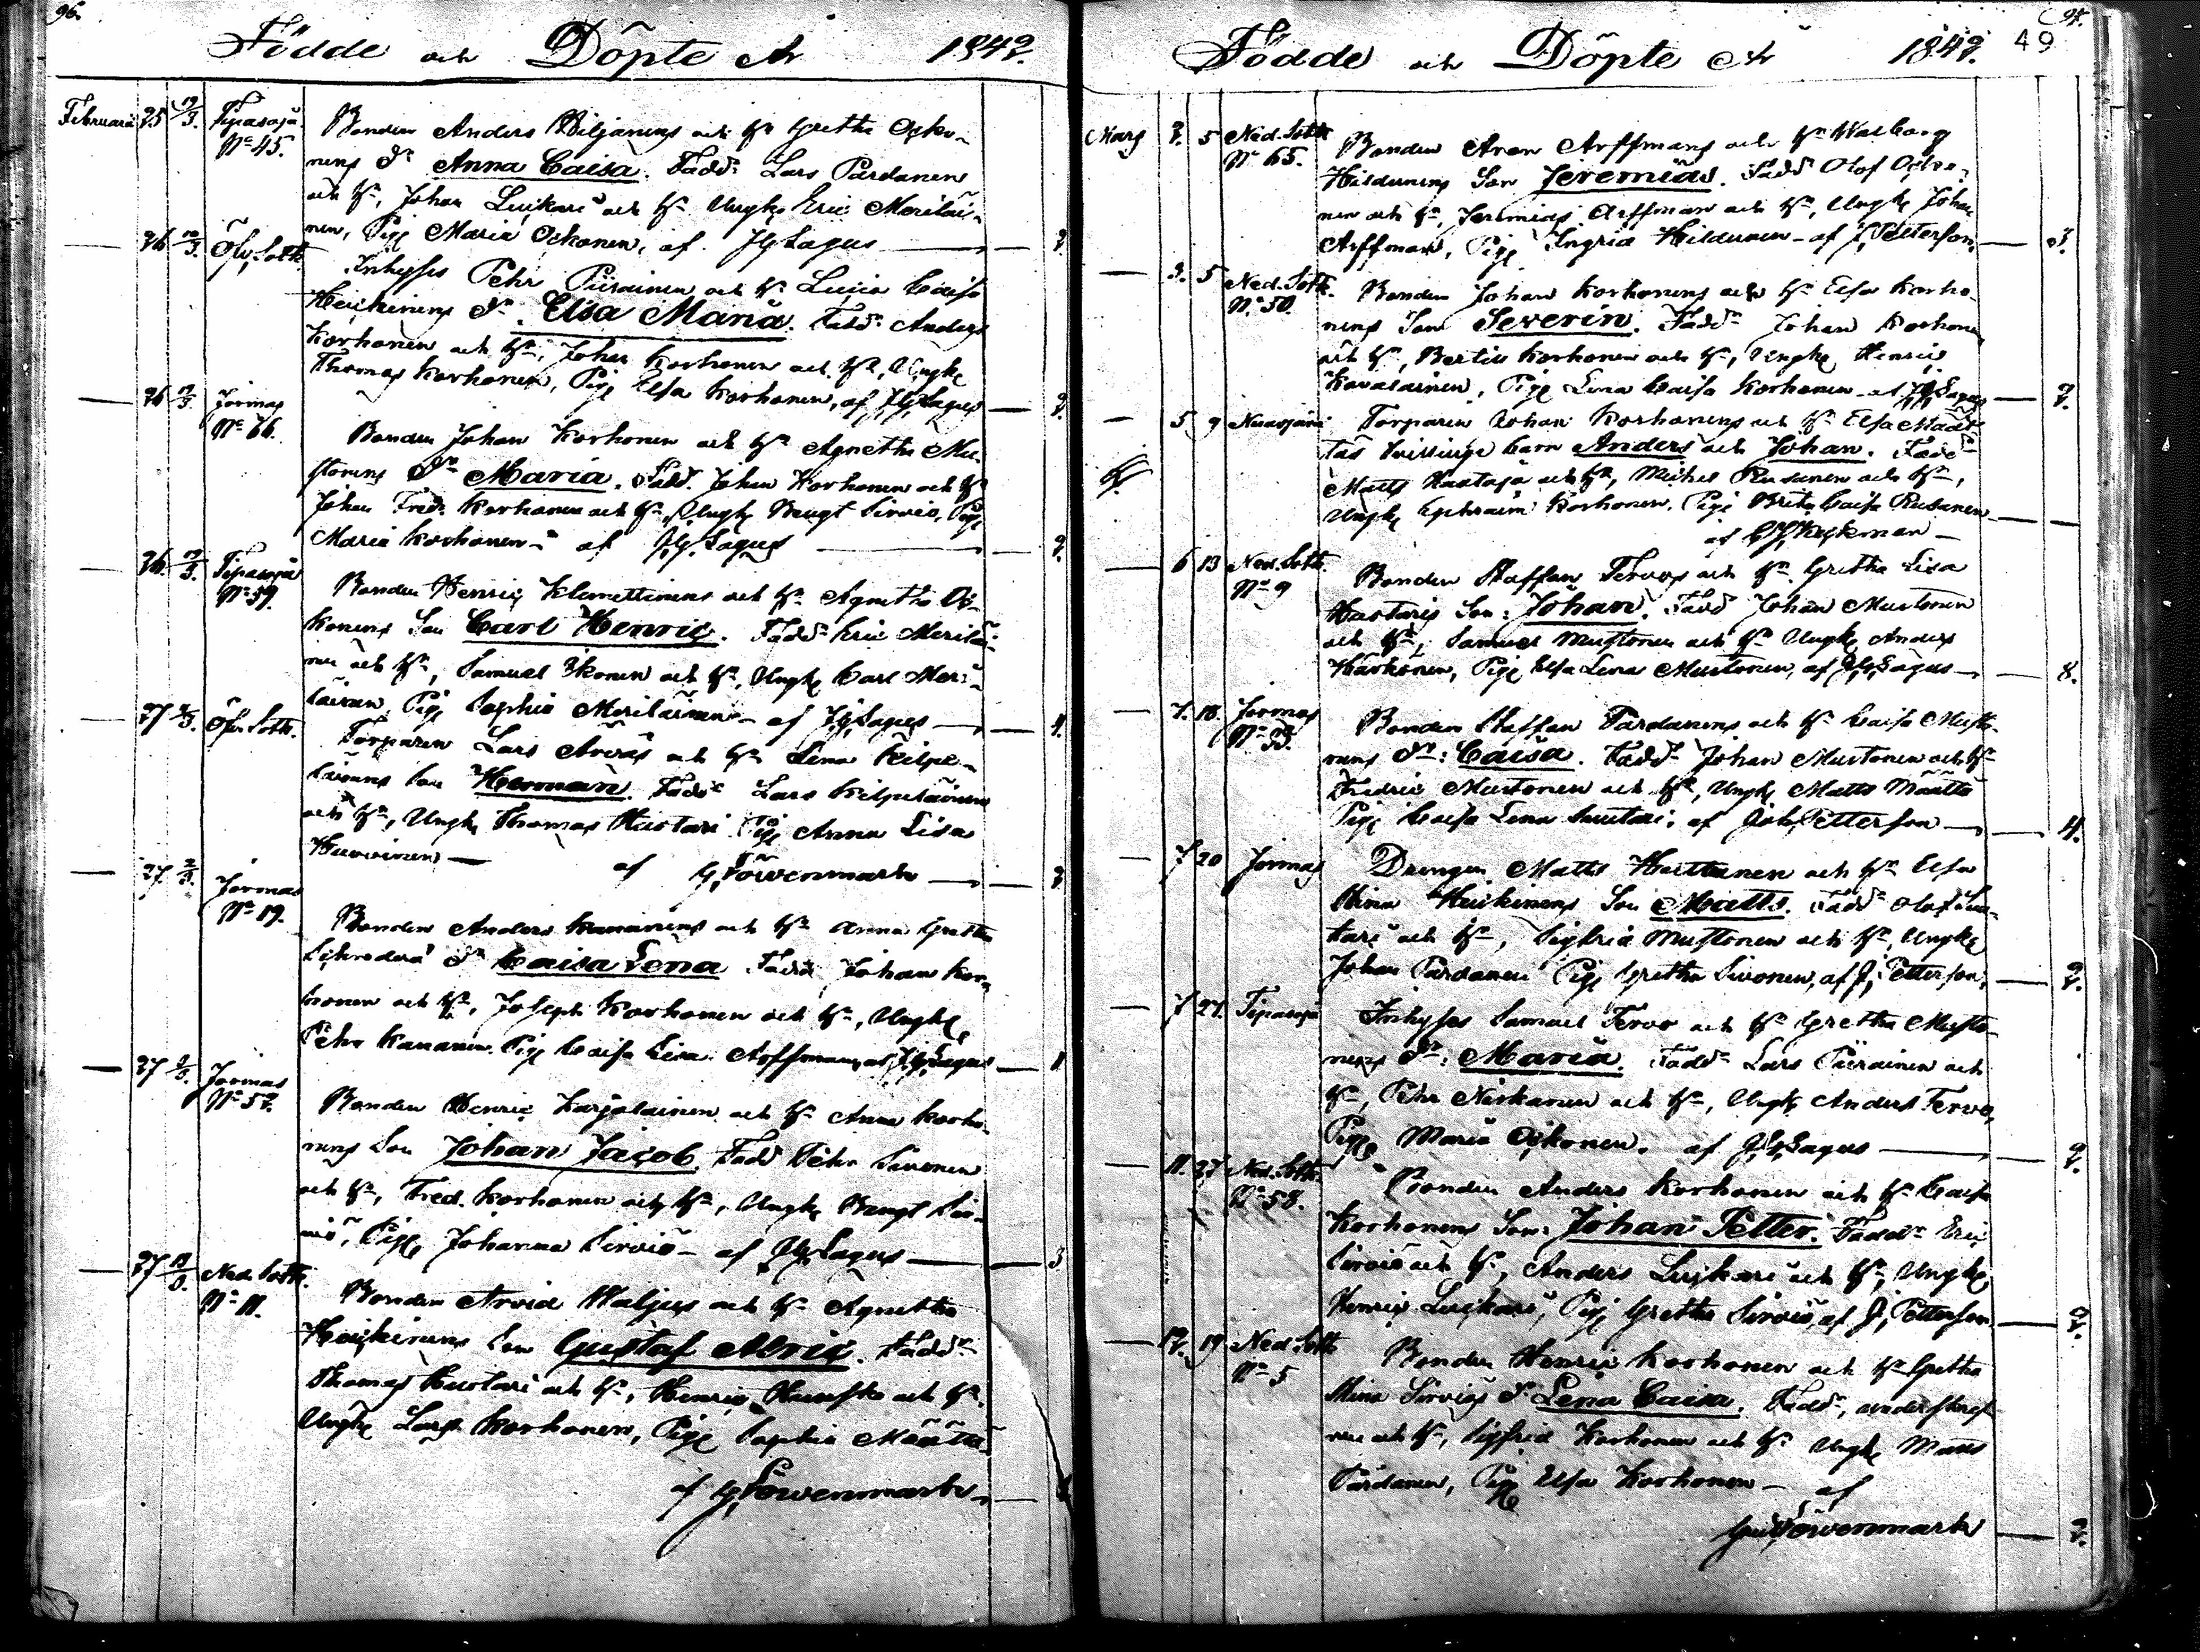 96.
Födde och Döpte År 1842.
Februarii 25 12/3. Tipasoja Bonden Anders Wiljanens och h:u Gretha Ocko-
N:o 45. nens D:r Anna Caisa. Fadd: Lars Pardanen
och h:u, Johan Luikari och h:u Ungk. Eric Meriläi-
nen, Pig. Maria Ockonen, af JGLagus
26 12/3. Öfv. Sotk. Inhyses Pehr Piirainen och h:u Lucia Caisa
Heickinens D:r Elsa Maria. Fadd: Anders
Korhonen och h:u, Johan Korhonen och h:u, Ungk.
Thomas Korhonen, Pig. Elsa Korhonen, af JGLagus
26 12/3. Jormas
N:o 76. Bonden Johan Korhonen och h:u Agnetha Mu-
stonens D:r Maria. Fadd. Johan Korhonen och h:u
Johan Fredr. Korhonen och h:u, Ungk. Bengt Sirviö, Pig.
Maria Korhonen af JGLagus
26. 12/3. Tipasoja
N:o 39. Bonden Henric Klemettinens och h:u Agnetha Oc-
konens Son Carl Henric. Fadd: Eric Meriläi-
nen och h:u, Samuel Ikonen och h:u, Ungk. Carl Meri-
läinen, Pig. Sophia Meriläinen af JGLagus 4.
27 Öfv. Sotk. Torparen Lars Arvas och h:u Lena Kilpe-
läinens Son Herman. Fadd: Lars Kilpeläinen
och h:u, Ungk. Thomas Hustari Pig. Anna Lisa
Huovinen af G,Löwenmark
27. 2/3. Jormas
N:o 19. Bonden Anders Kananens och h:u Anna Gretha
Schroderi D:r Caisa Lena Fadd: Johan Kor-
honen och h:u, Joseph Korhonen och h:u, Ungk.
Pehr Kananen. Pig. Caisa Lisa Arffman, af JGLagus 1
27 Jormas
N:o 57. Bonden Henric Karjalainen och h:u Anna Korho-
nens Son Johan Jacob Fadd Pehr Sivonen
och h:u, Fred. Korhonen och h:u, Ungk. Bengt Sir-
viö, Pig. Johanna Sirviö af JGLagus 3
27 Ned. Sotk.
N:o 11. Bonden Arvid Waljus och h:u Agnetha
Heickinens Son Gustaf Alric. Fadd:
Thomas Hustari och h:u, Henric och h:u.
Ungk. Lars Korhonen, Pig. Sophia Määttä
af G,Löwenmark
Födde och Döpte År 1842. 49
Mars 2. 5 Ned. Sotk. Bonden Aron Arffmans och h:u Walborg
N:o 65. Hildunens Son Jeremias. Fadd Olof Ocko-
nen och h:u, Jeremias Arffman och h:u, Ungk. Johan
Arffman, Pig. Ingrid Hildunen af J,Petterson. 3.
3. 5 Ned. Sotk. Bonden Johan Korhonens och h:u Elsa Korho-
N:o 50. nens Son Severin. Fadd: Johan Korhonen
och h:u, Bertil Korhonen och h:u, Ungk. Henric
Kovalainen, Pig. Lena Caisa Korhonen af JGLagus
5 9 Nuasjärvi Torparen Johan Korhonens och h:u Elsa Määt-
täs tvillinge barn Anders och Johan. Fadd:
Matts Kautaja och h:u, Michel Rusanen och h:u,
Ungk. Ephraim Korhonen, Pig. Britha Caisa Rusanen
af
6 13 Ned. Sotk. Bonden Staffan Tervos och h:u Gretha Lisa
N:o 9 Hustaris Son: Johan. Fadd Johan Mustonen
och h:u, Samuel Mustonen och h:u Ungk. Anders
Härkönen, Pig. Elsa Lena Mustonen, af JGLagus 8.
7. 18. Jormas Bonden Staffan Pardanens och h:u Caisa Musto-
N:o 33. nens D:r: Caisa. Fadd: Johan Mustonen och h:u
Fredric Mustonen och h:u, Ungk. Matts Määttä
Pig. Caisa Lena Suutari, af Joh,Petterson 4.
7 20 Jormas Drengen Matts Huttunen och h:u Elsa
Stina Heickinens Son Matts. Fadd: Olof Suu-
tari och h:u, Sigfrid Mustonen och h:u, Ungk.
Johan Pardanen Pig. Gretha Sivonen, af J,Petterson,
7 27. Tipasoja Inhyses Samuel Tervo och h:u Gretha Musto-
nens D:r: Maria. Fadd: Lars Piirainen och
h:u, Pehr Niskanen och h:u, Ungk. Anders Tervo,
Pig. Maria Ockonen. af JGLagus
11. 27 Ned. Sotk.
N:o 58. Bonden Anders Korhonen och h:u Caisa
Korhonens Son: Johan Petter. Fadd:r Eric
Sirviö och h:u, Anders Luikari och h:u, Ungk.
Henric Luikari, Pig. Gretha Sirviö, af J,Petterson
12. 19 Ned. Sotk
N:o 5 Bonden Henric Korhonen och h:u Gretha
Stina Sirviös D: Lena Caisa. Fadd:,
och h:u, Sigfrid Korhonen och h:u Ungk. Matts
Pardanen, Pig. Elsa Korhonen af
Löwenmark